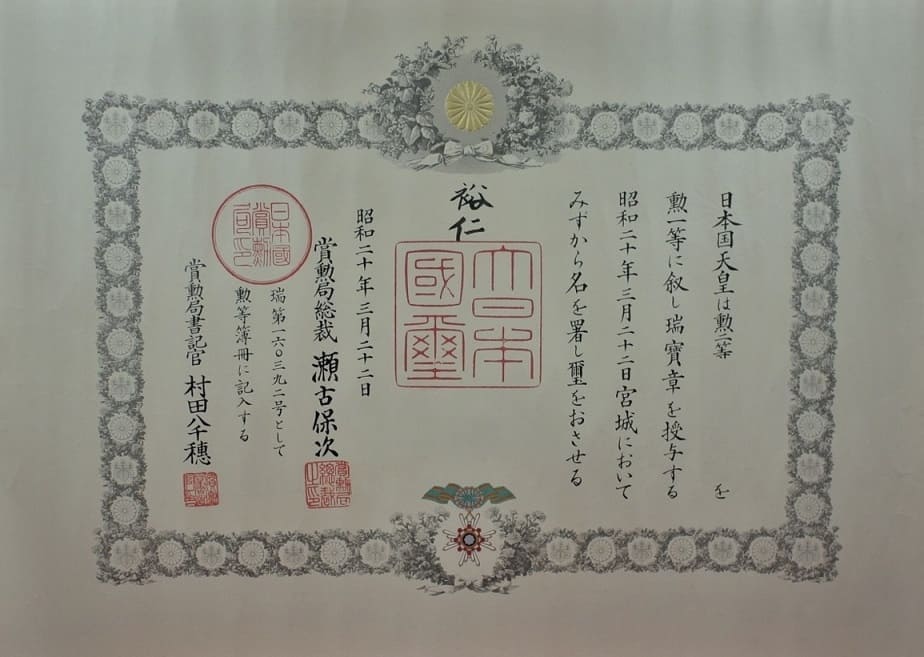 日本国天皇は勲二等　を
勲一等に叙し瑞寶章を授与する
昭和二十年三月二十二日宮城において
みずから名を署し璽をおさせる
裕仁
大日本
國璽
昭和二十年三月二十二日
賞勲局総裁 瀬古保次
賞勲局総裁之印
瑞第一六〇三九二号として
勲等簿冊に記入する
日本國
賞勲
局印
賞勲局書記官 村田八千穗